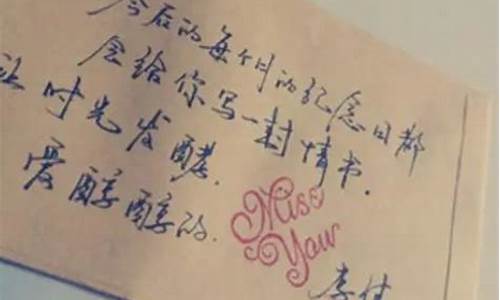 今后的每个月的纪念日都
会给你写一封情书.
让时光发酵.
爱醇醇的.
Miss
You
李